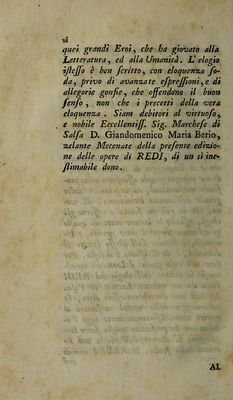 vi
quei grandi Eroi, che ha giovato alla
Letteratura, ed alla Umanità. L'elogio
iſteſſo è ben ſcritto, con eloquenza ſo-
da, privo di avanzate eſpreſſioni, e di
allegorie gonfie, che offendono il buon
ſenſo, non che i precetti della vera
eloquenza. Siam debitori al virtuoſo,
e nobile Eccellentiſſ. Sig. Marcheſe di
Salſa D. Giandomenico Maria Berio,
zelante Mecenate della preſente edizio-
ne delle opere di REDI, di un sì ine-
ſtimabile dono.
AI.